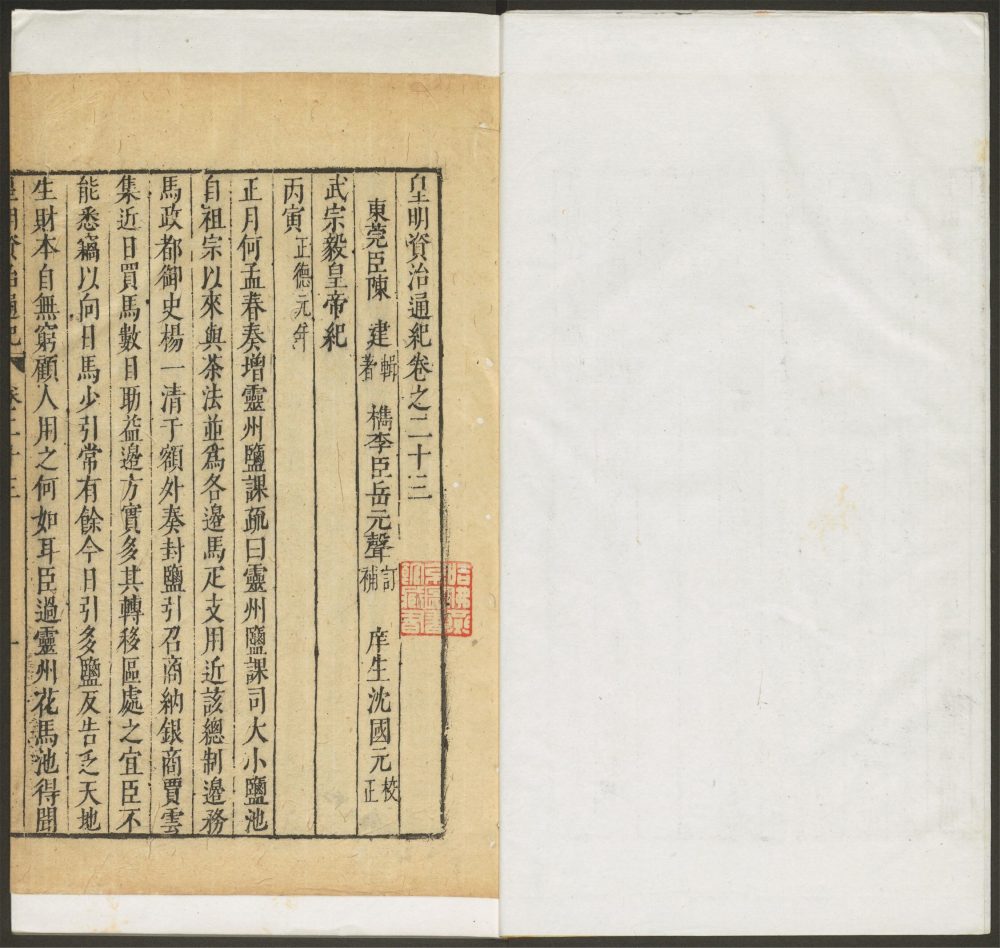 皇明資治通紀卷之二十三
東莞臣陳　建輯著　檇李臣岳元聲訂補　庠生沈國元校正
武宗毅皇帝紀
丙寅正德元年
正月何孟春奏增靈州鹽課疏曰靈州鹽課司大小鹽池
自祖宗以來與茶法並爲各邊馬疋支用近該總制邊務
馬政都御史楊一清于額外奏封鹽引召商納銀商賈雲
集近日買馬數目助益邊方實多其轉移區處之宜臣不
能悉竊以向日馬少引常有餘今日引多鹽反告乏天地
生財本自無窮顧人用之何如耳臣過靈州花馬池得聞
皇明資治通紀　卷二十三　一